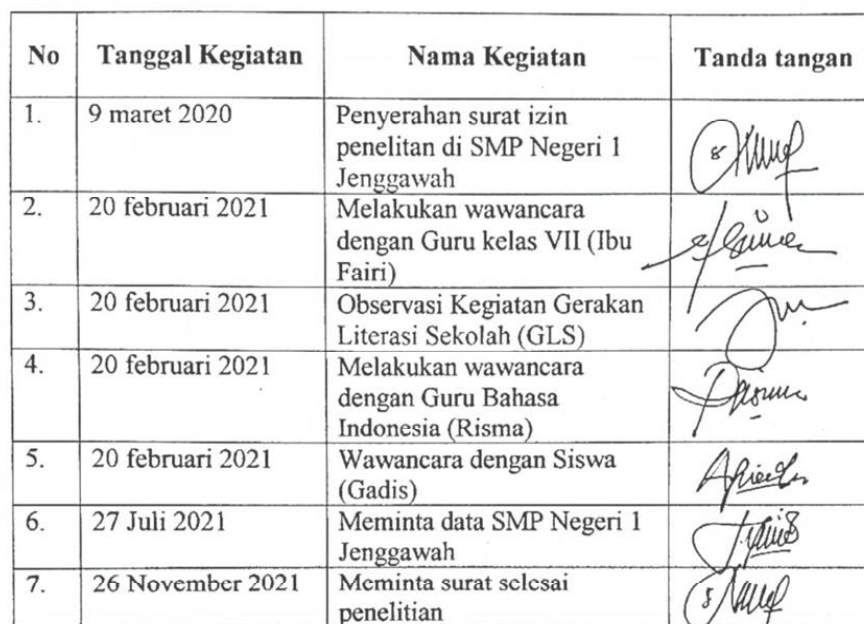 No Tanggal Kegiatan Nama Kegiatan Tanda tangan
1. 9 maret 2020 Penyerahan surat izin
penelitan di SMP Negeri 1
Jenggawah
2. 20 februari 2021 Melakukan wawancara
dengan Guru kelas VII (Ibu
Fairi)
3. 20 februari 2021 Observasi Kegiatan Gerakan
Literasi Sekolah (GLS)
4. 20 februari 2021 Melakukan wawancara
dengan Guru Bahasa
Indonesia (Risma)
5. 20 februari 2021 Wawancara dengan Siswa
(Gadis)
6. 27 Juli 2021 Meminta data SMP Negeri 1
Jenggawah
7. 26 November 2021 Meminta surat selesai
penelitian